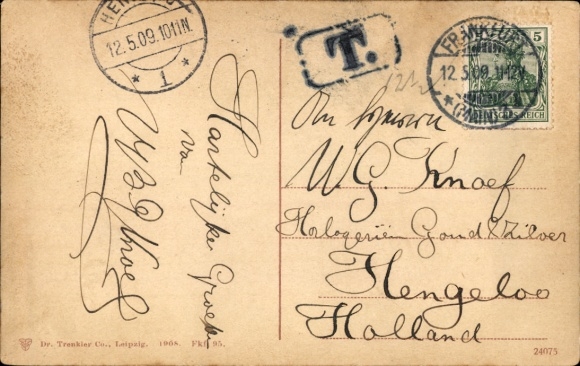 HENGELO
12.5.09.10-11N.
* 1 *
T.
FRANKFURT
12.5.09.11-12V.
* (MAIN) 1
5
DEUTSCHES REICH
Hartelijke Groeten
van
W G Knoef
Den Heeren
W. G. Knoef
Horlogeriën Goud & Zilver
Hengeloo
Holland
Dr. Trenkler Co., Leipzig. 1908. Fkf. 95.
24075